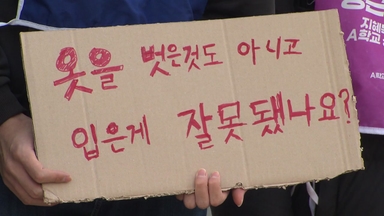 옷을 벗은것도 아니고
입은게 잘못됐나요?
지혜복
A학교